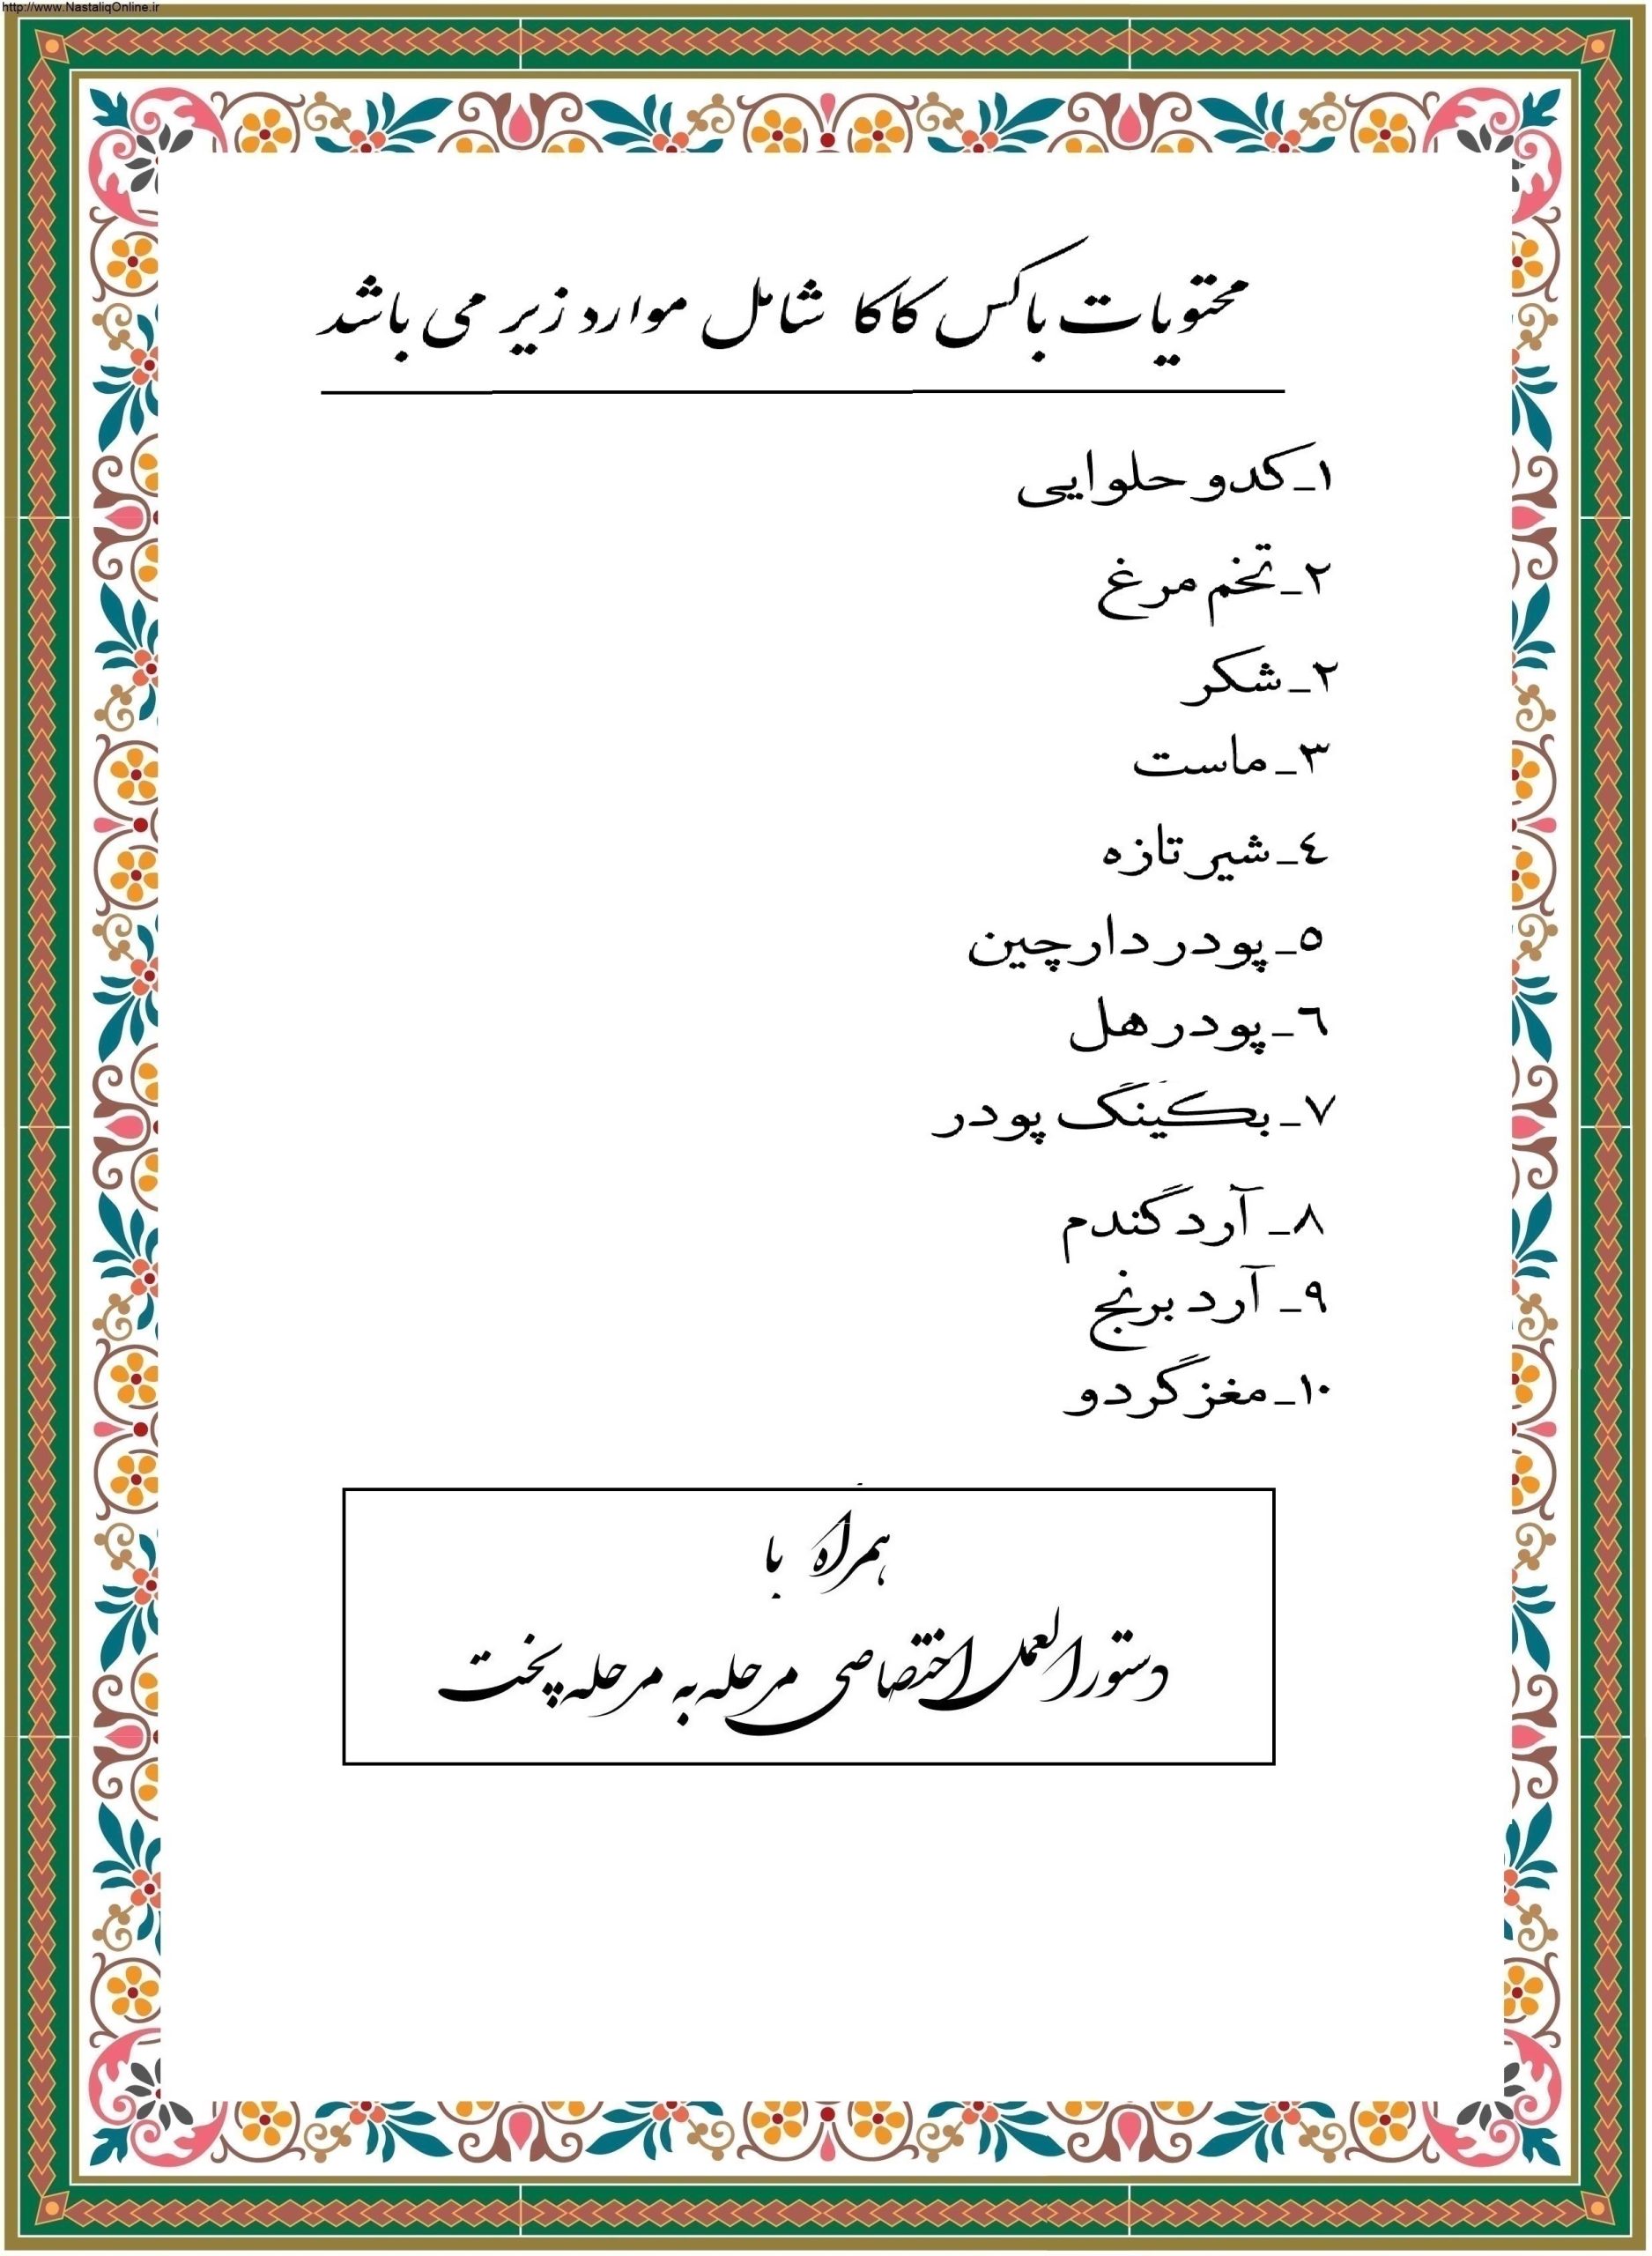 http://www.NastaliqOnline.ir
محتویات باکس کاکا شامل موارد زیر می باشد
١_کدو حلوایی
٢_تخم مرغ
٢_شکر
٣_ماست
٤_شیر تازه
٥_پودر دارچین
٦_پودر هل
٧_بکینگ پودر
٨_ آرد گندم
٩_ آرد برنج
١٠_مغز گردو
همراه با
دستورالعمل اختصاصی مرحله به مرحله پخت